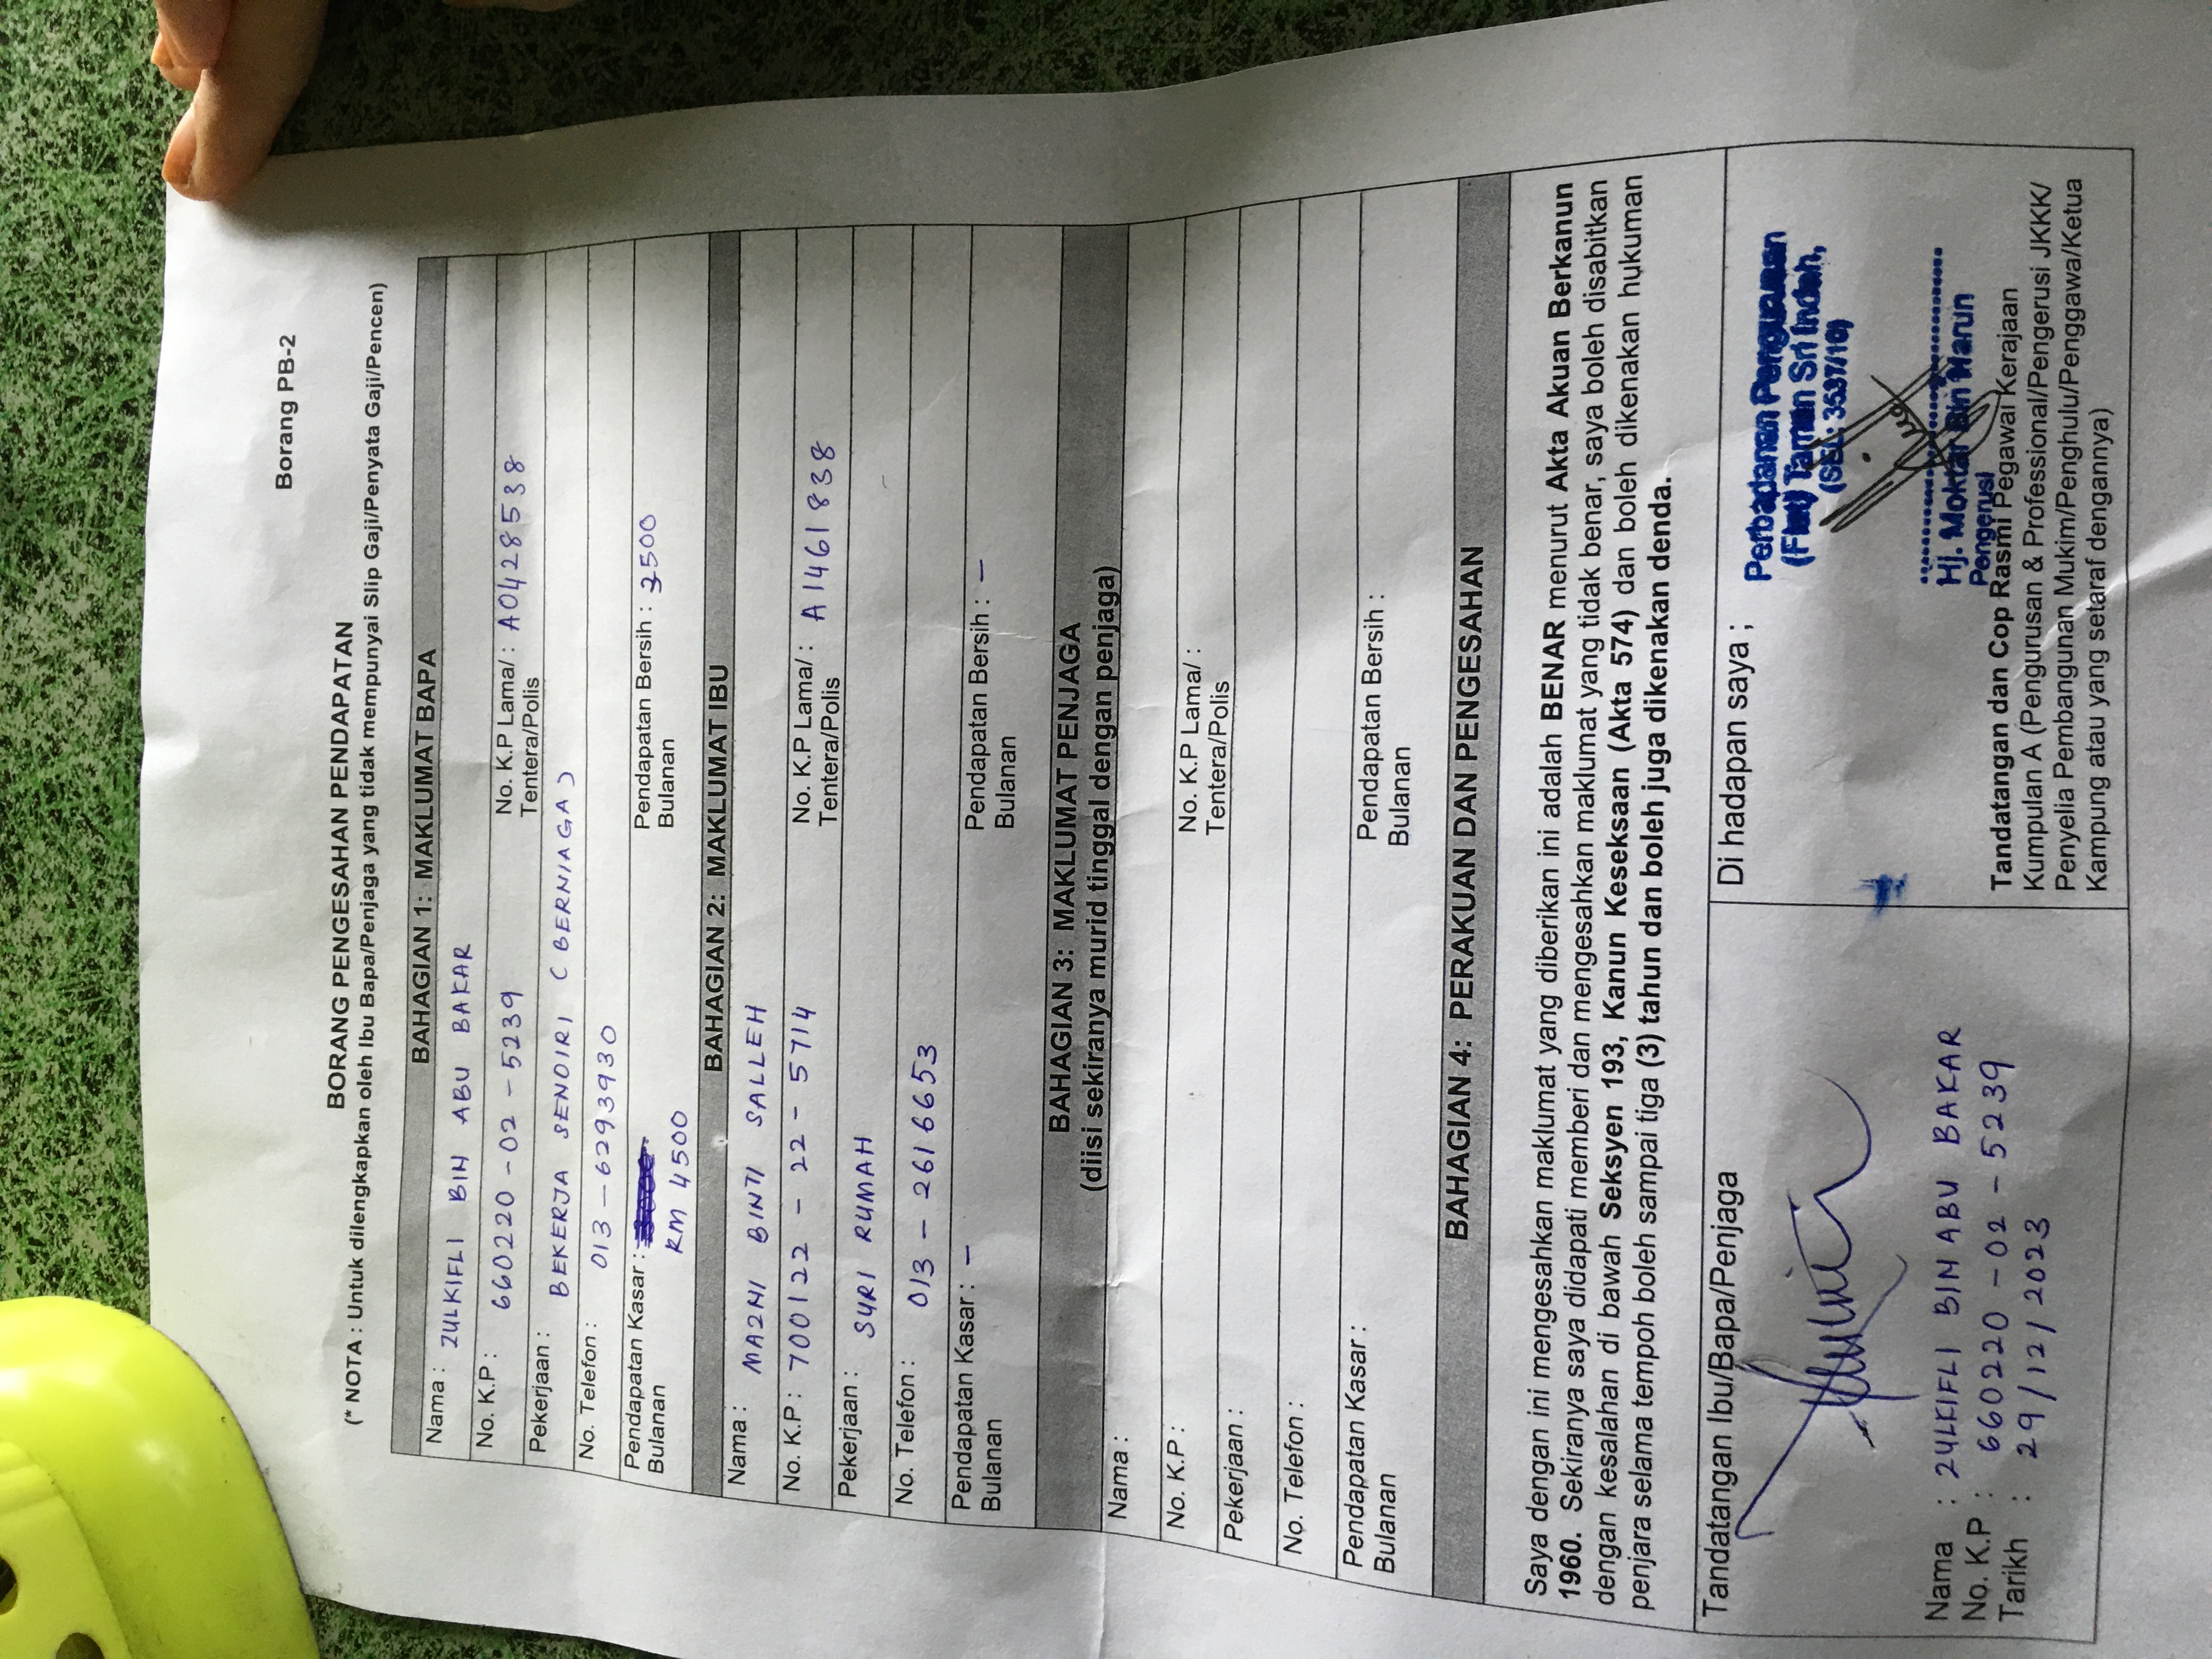 Borang PB-2
BORANG PENGESAHAN PENDAPATAN
(* NOTA : Untuk dilengkapkan oleh Ibu Bapa/Penjaga yang tidak mempunyai Slip Gaji/Penyata Gaji/Pencen)
BAHAGIAN 1: MAKLUMAT BAPA
Nama : ZULKIFLI BIN ABU BAKAR
No. K.P : 660220 - 02 - 5239 No. K.P Lama/ : A0428538
Tentera/Polis
Pekerjaan : BEKERJA SENDIRI ( BERNIAGA )
No. Telefon : 013 - 6293930
Pendapatan Kasar : Pendapatan Bersih : 3500
Bulanan RM 4500 Bulanan
BAHAGIAN 2: MAKLUMAT IBU
Nama : MAZNI BINTI SALLEH
No. K.P : 700122 - 22 - 5714 No. K.P Lama/ : A1461838
Tentera/Polis
Pekerjaan : SURI RUMAH
No. Telefon : 013 - 2616653
Pendapatan Kasar : - Pendapatan Bersih : -
Bulanan Bulanan
BAHAGIAN 3: MAKLUMAT PENJAGA
(diisi sekiranya murid tinggal dengan penjaga)
Nama :
No. K.P : No. K.P Lama/ :
Tentera/Polis
Pekerjaan :
No. Telefon :
Pendapatan Kasar : Pendapatan Bersih :
Bulanan Bulanan
BAHAGIAN 4: PERAKUAN DAN PENGESAHAN
Saya dengan ini mengesahkan maklumat yang diberikan ini adalah BENAR menurut Akta Akuan Berkanun
1960. Sekiranya saya didapati memberi dan mengesahkan maklumat yang tidak benar, saya boleh disabitkan
dengan kesalahan di bawah Seksyen 193, Kanun Keseksaan (Akta 574) dan boleh dikenakan hukuman
penjara selama tempoh boleh sampai tiga (3) tahun dan boleh juga dikenakan denda.
Tandatangan Ibu/Bapa/Penjaga
Nama : ZULKIFLI BIN ABU BAKAR
No. K.P : 660220 - 02 - 5239
Tarikh : 29/12/2023
Di hadapan saya ;
Perbadanan Pengurusan
(Flat) Taman Sri Indah,
(SEL: 3537/10)
Hj. Moktar Bin Harun
Pengerusi
Tandatangan dan Cop Rasmi Pegawai Kerajaan
Kumpulan A (Pengurusan & Professional/Pengerusi JKKK/
Penyelia Pembangunan Mukim/Penghulu/Penggawa/Ketua
Kampung atau yang setaraf dengannya)